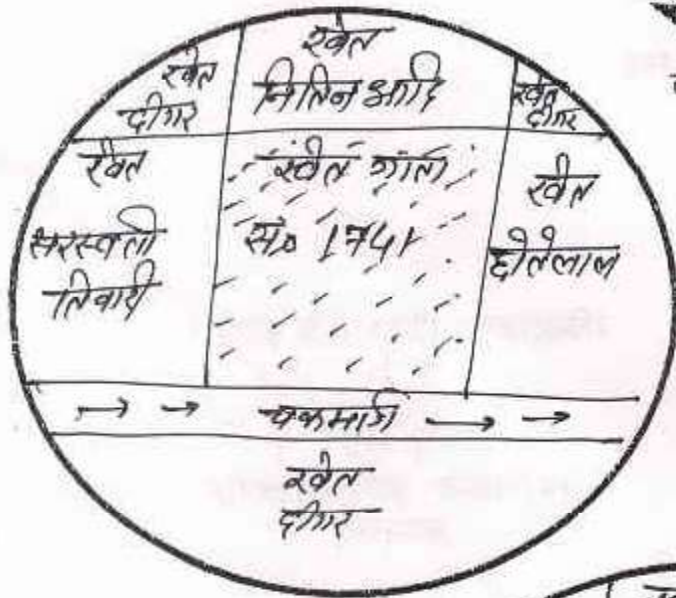 खेत
दीगर
खेत
नितिन आदि
खेत
दीगर
खेत
सरस्वती
तिवारी
खेत गाटा
सं० 1741
खेत
छोटेलाल
चकमार्ग
खेत
दीगर